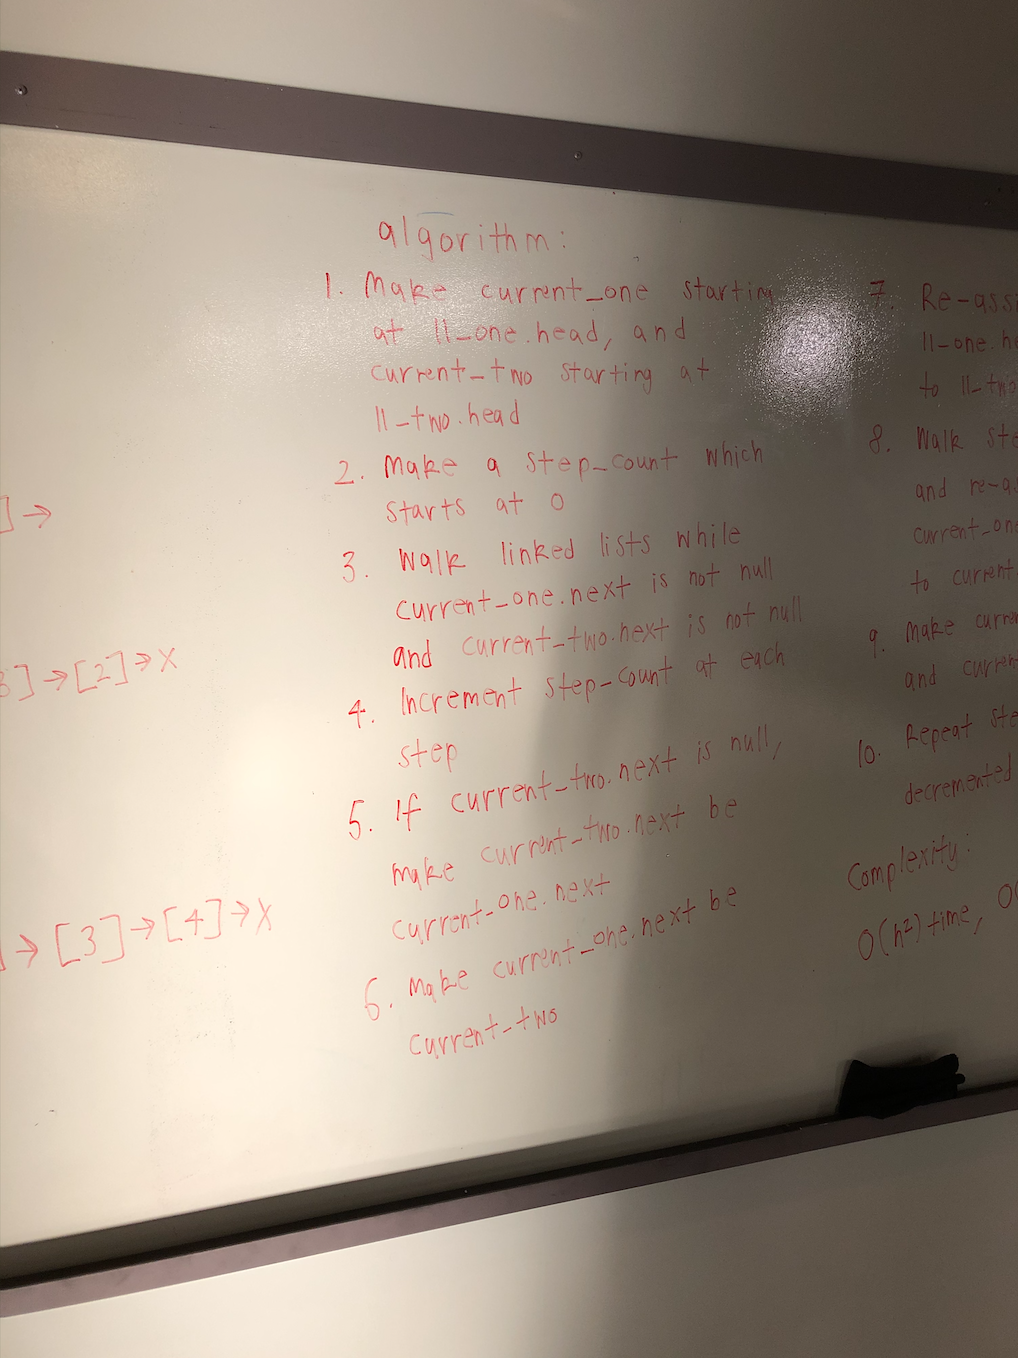 algorithm:
1. Make current_one starting
at ll_one.head, and
current_two starting at
ll_two.head
2. Make a step_count which
starts at 0
3. Walk linked lists while
current_one.next is not null
and current_two.next is not null
4. Increment step_count at each
step
5. If current_two.next is null,
make current_two.next be
current_one.next
6. Make current_one.next be
current_two
7. Re-assi
ll_one.he
to ll_two
8. Walk ste
and re-as
current_one
to current
9. Make curren
and curren
10. Repeat ste
decremented
Complexity:
O(n²) time, O(
] →
3] → [2] → X
] → [3] → [4] → X